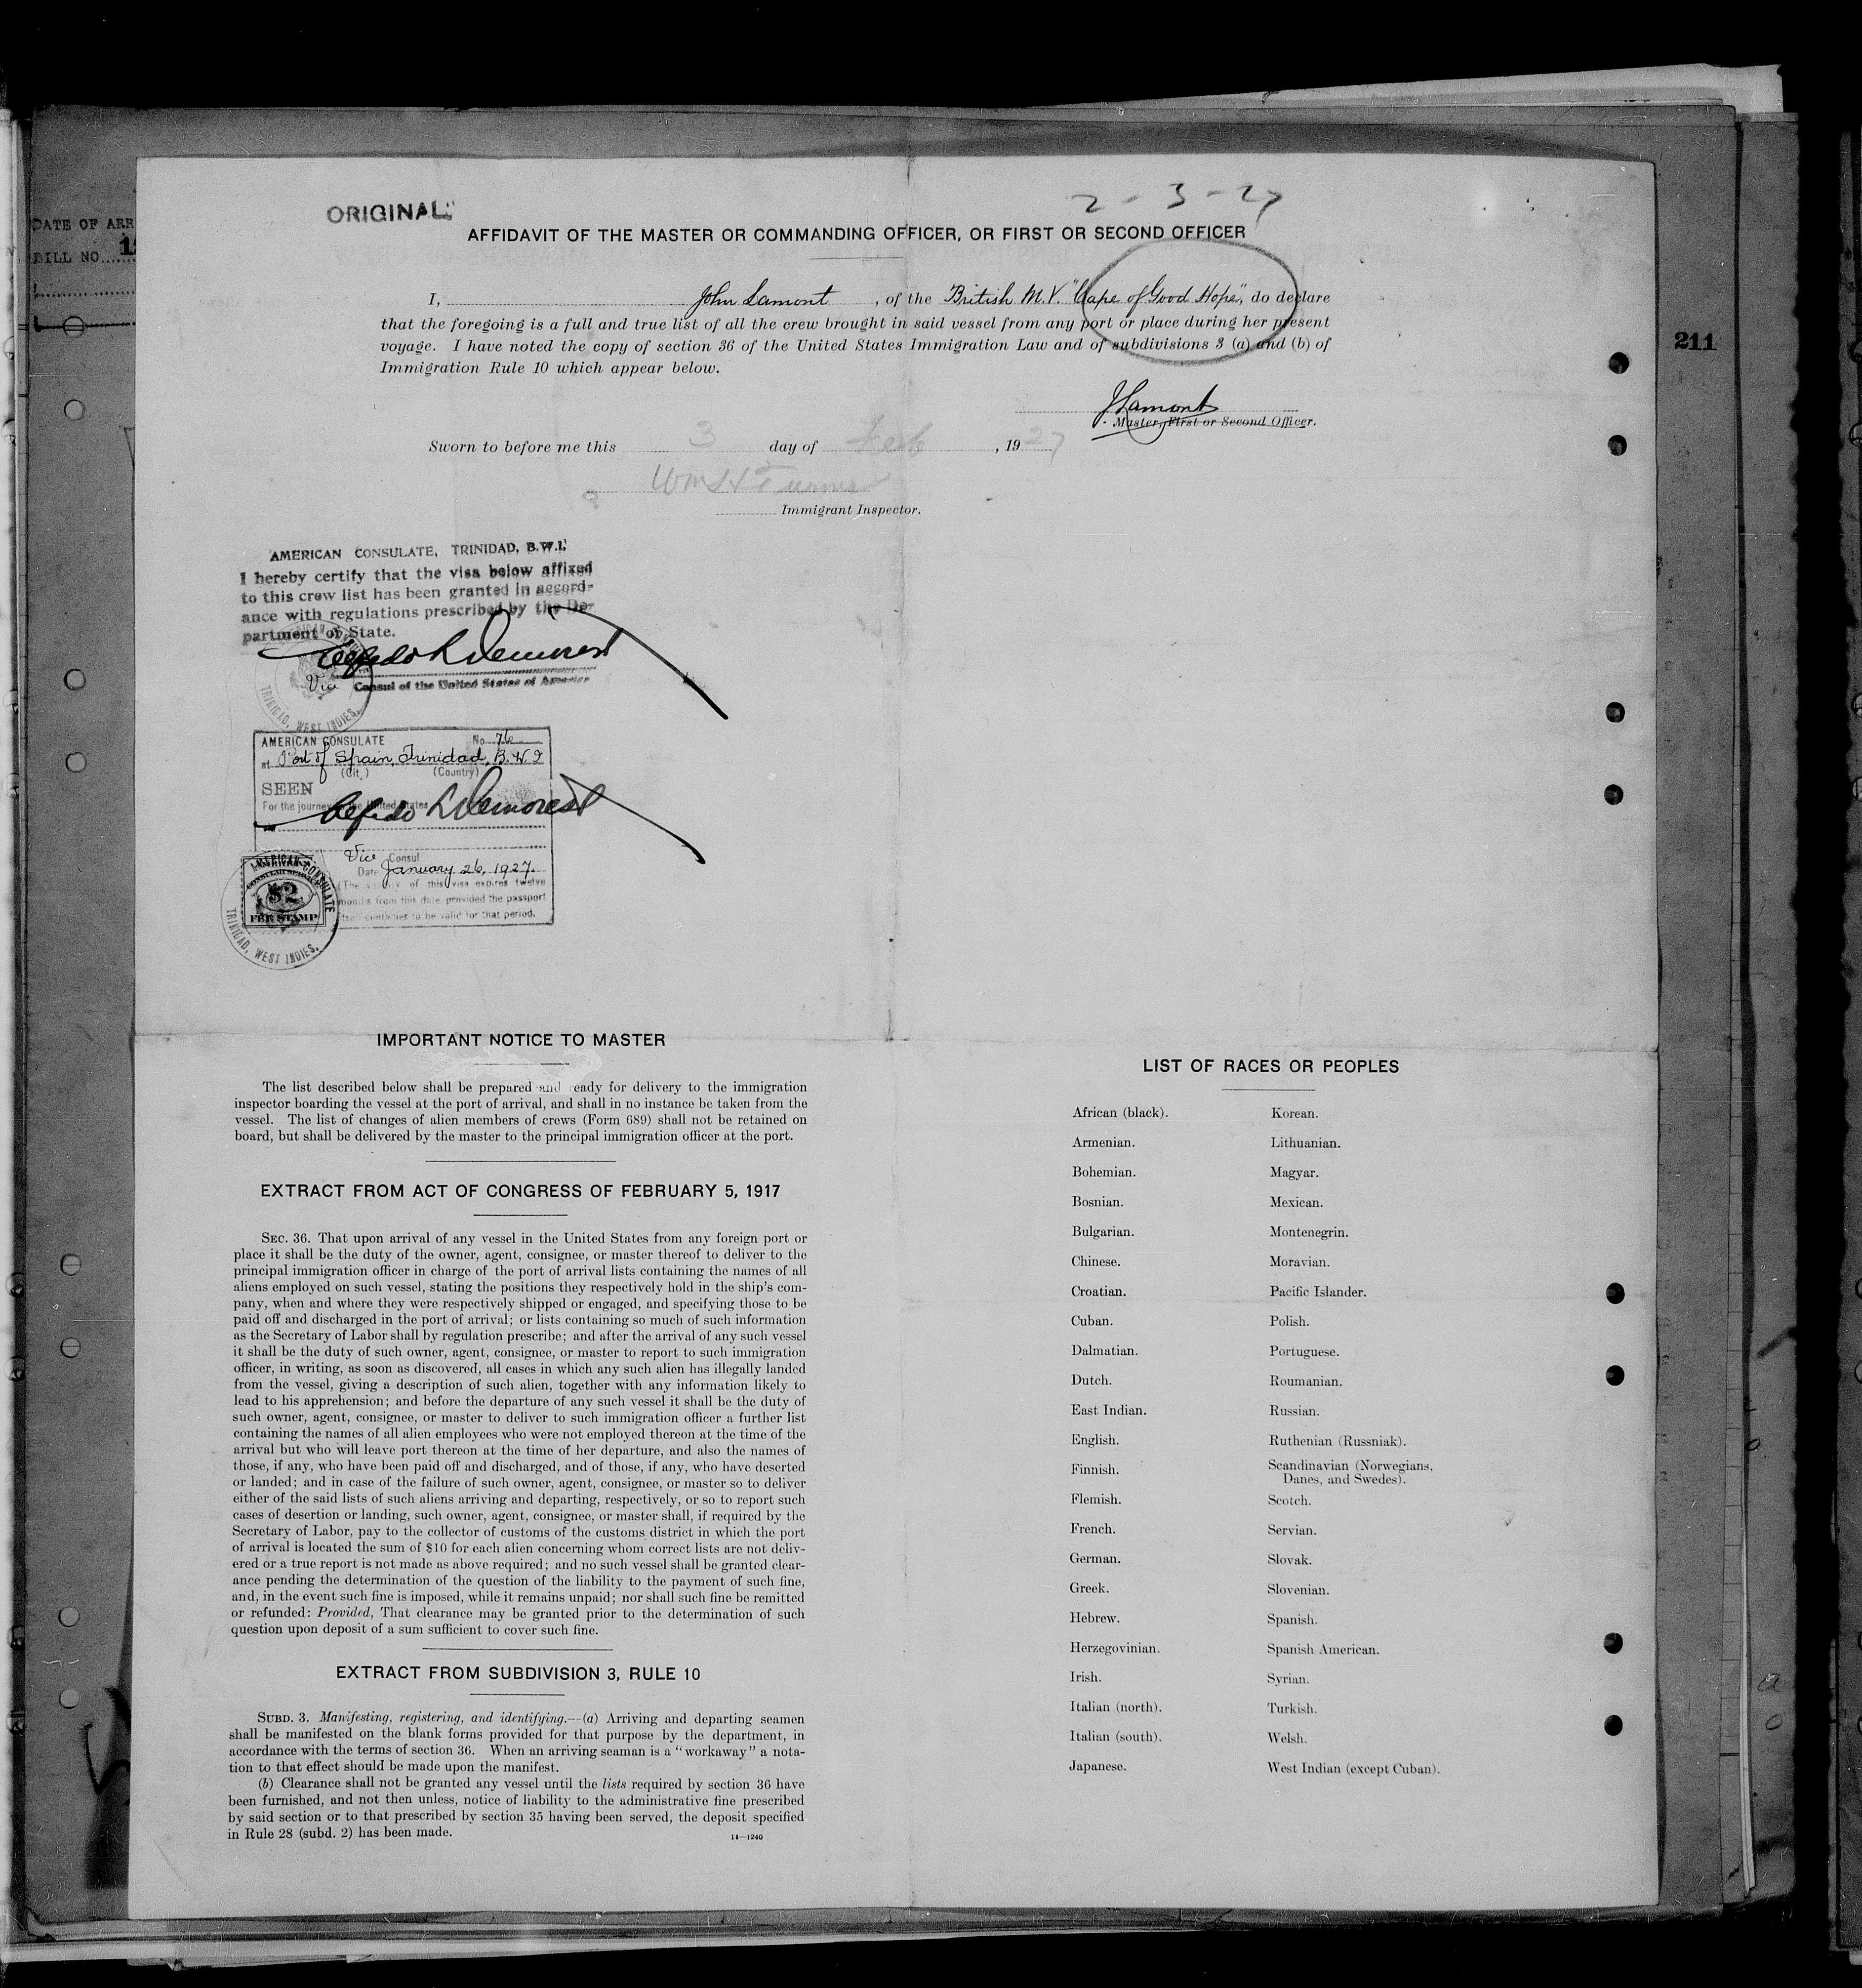 DATE OF ARR
BILL NO
211
ORIGINAL
2-3-27
AFFIDAVIT OF THE MASTER OR COMMANDING OFFICER, OR FIRST OR SECOND OFFICER
I, John Lamont, of the British M.V. "Cape of Good Hope", do declare
that the foregoing is a full and true list of all the crew brought in said vessel from any port or place during her present
voyage. I have noted the copy of section 36 of the United States Immigration Law and of subdivisions 3 (a) and (b) of
Immigration Rule 10 which appear below.
JLamont
Master, First or Second Officer.
Sworn to before me this 3 day of Feb, 1927
Wm H Turner
Immigrant Inspector.
AMERICAN CONSULATE, TRINIDAD, B.W.I.
I hereby certify that the visa below affixed
to this crew list has been granted in accord-
ance with regulations prescribed by the De-
partment of State.
Alfredo L Demorest
Vice Consul of the United States of America
TRINIDAD, WEST INDIES.
AMERICAN CONSULATE No. 76
at Port of Spain, Trinidad, B.W.I
(City) (Country)
SEEN
For the journey to the United States
Alfredo L Demorest
Vice Consul
Date January 26, 1927.
(The validity of this visa expires twelve
months from this date provided the passport
itself continues to be valid for that period.
AMERICAN CONSULATE
CONSULAR SERVICE
$2
FEE STAMP
TRINIDAD, WEST INDIES.
IMPORTANT NOTICE TO MASTER
The list described below shall be prepared and ready for delivery to the immigration
inspector boarding the vessel at the port of arrival, and shall in no instance be taken from the
vessel. The list of changes of alien members of crews (Form 689) shall not be retained on
board, but shall be delivered by the master to the principal immigration officer at the port.
EXTRACT FROM ACT OF CONGRESS OF FEBRUARY 5, 1917
SEC. 36. That upon arrival of any vessel in the United States from any foreign port or
place it shall be the duty of the owner, agent, consignee, or master thereof to deliver to the
principal immigration officer in charge of the port of arrival lists containing the names of all
aliens employed on such vessel, stating the positions they respectively hold in the ship's com-
pany, when and where they were respectively shipped or engaged, and specifying those to be
paid off and discharged in the port of arrival; or lists containing so much of such information
as the Secretary of Labor shall by regulation prescribe; and after the arrival of any such vessel
it shall be the duty of such owner, agent, consignee, or master to report to such immigration
officer, in writing, as soon as discovered, all cases in which any such alien has illegally landed
from the vessel, giving a description of such alien, together with any information likely to
lead to his apprehension; and before the departure of any such vessel it shall be the duty of
such owner, agent, consignee, or master to deliver to such immigration officer a further list
containing the names of all alien employees who were not employed thereon at the time of the
arrival but who will leave port thereon at the time of her departure, and also the names of
those, if any, who have been paid off and discharged, and of those, if any, who have deserted
or landed; and in case of the failure of such owner, agent, consignee, or master so to deliver
either of the said lists of such aliens arriving and departing, respectively, or so to report such
cases of desertion or landing, such owner, agent, consignee, or master shall, if required by the
Secretary of Labor, pay to the collector of customs of the customs district in which the port
of arrival is located the sum of $10 for each alien concerning whom correct lists are not deliv-
ered or a true report is not made as above required; and no such vessel shall be granted clear-
ance pending the determination of the question of the liability to the payment of such fine,
and, in the event such fine is imposed, while it remains unpaid; nor shall such fine be remitted
or refunded: Provided, That clearance may be granted prior to the determination of such
question upon deposit of a sum sufficient to cover such fine.
EXTRACT FROM SUBDIVISION 3, RULE 10
SUBD. 3. Manifesting, registering, and identifying.—(a) Arriving and departing seamen
shall be manifested on the blank forms provided for that purpose by the department, in
accordance with the terms of section 36. When an arriving seaman is a "workaway" a nota-
tion to that effect should be made upon the manifest.
(b) Clearance shall not be granted any vessel until the lists required by section 36 have
been furnished, and not then unless, notice of liability to the administrative fine prescribed
by said section or to that prescribed by section 35 having been served, the deposit specified
in Rule 28 (subd. 2) has been made.
14—1240
LIST OF RACES OR PEOPLES
African (black).
Armenian.
Bohemian.
Bosnian.
Bulgarian.
Chinese.
Croatian.
Cuban.
Dalmatian.
Dutch.
East Indian.
English.
Finnish.
Flemish.
French.
German.
Greek.
Hebrew.
Herzegovinian.
Irish.
Italian (north).
Italian (south).
Japanese.
Korean.
Lithuanian.
Magyar.
Mexican.
Montenegrin.
Moravian.
Pacific Islander.
Polish.
Portuguese.
Roumanian.
Russian.
Ruthenian (Russniak).
Scandinavian (Norwegians,
Danes, and Swedes).
Scotch.
Servian.
Slovak.
Slovenian.
Spanish.
Spanish American.
Syrian.
Turkish.
Welsh.
West Indian (except Cuban).